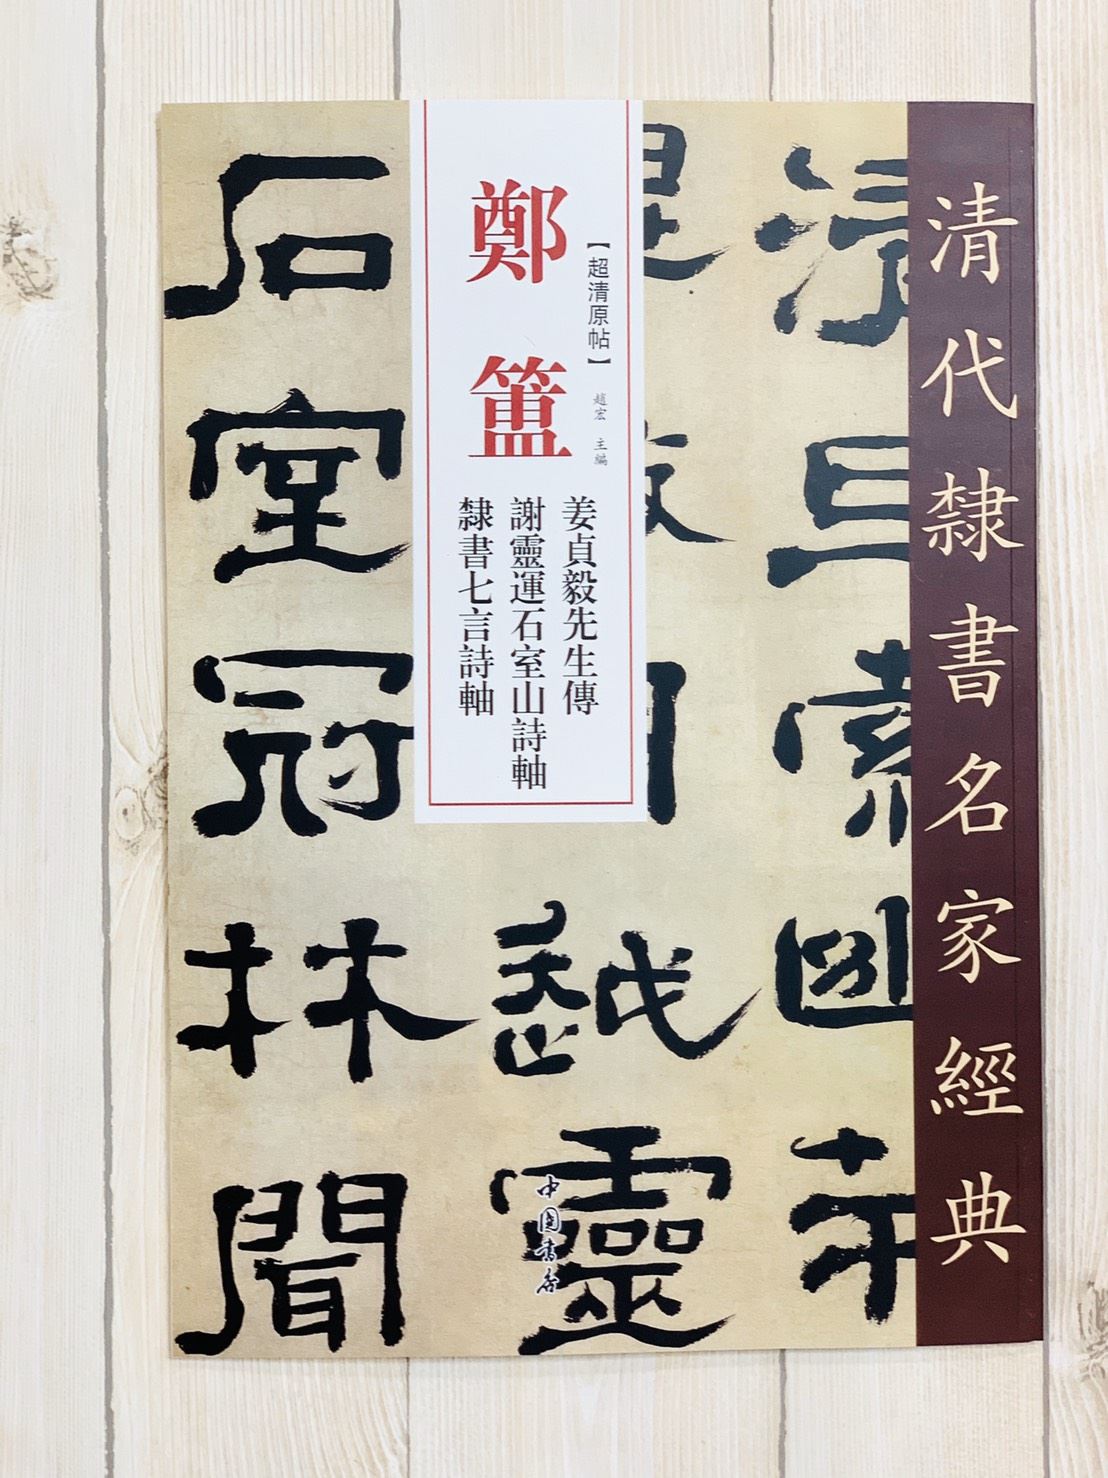 清代隸書名家經典
【超清原帖】
趙宏 主編
鄭簠
姜貞毅先生傳
謝靈運石室山詩軸
隸書七言詩軸
清旦索幽
越靈
石室冠林聞
中國書店